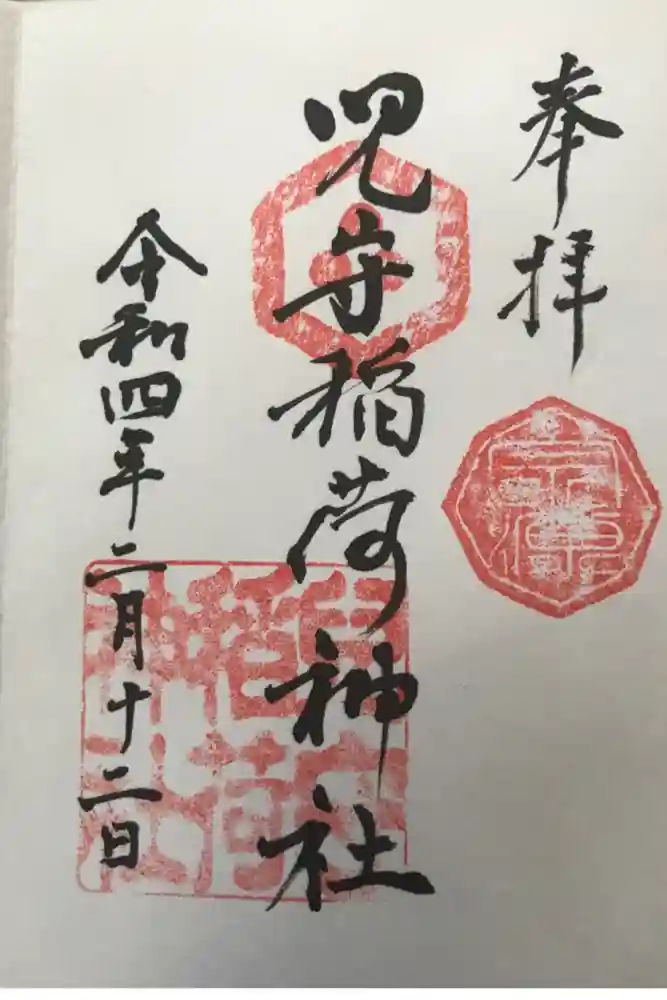 奉拝
児守稲荷神社
令和四年二月十二日